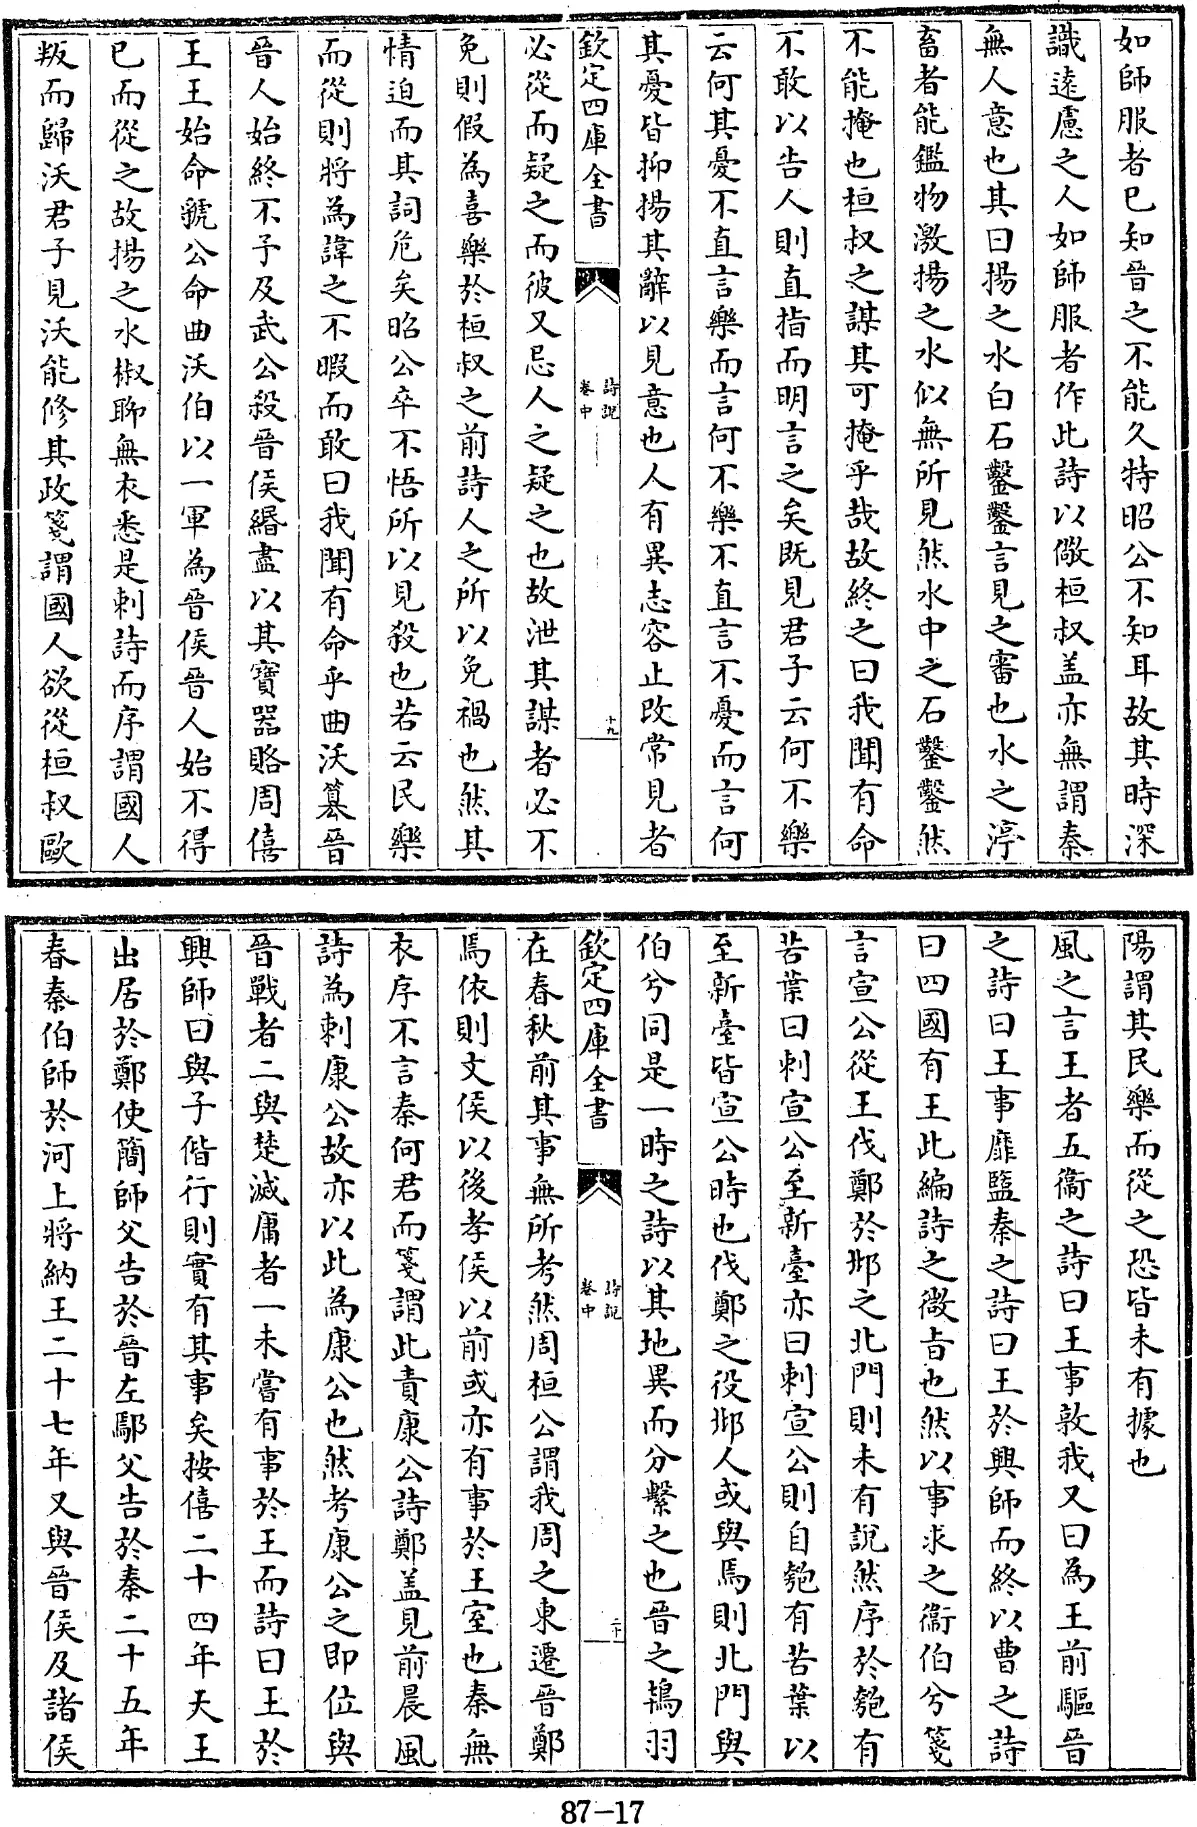 如師服者已知晉之不能久特昭公不知耳故其時深
識逺慮之人如師服者作此詩以儆桓叔盖亦無謂秦
無人意也其曰揚之水白石鑿鑿言見之審也水之渟
畜者能鑑物激揚之水似無所見然水中之石鑿鑿然
不能掩也桓叔之謀其可掩乎哉故終之曰我聞有命
不敢以告人則直指而明言之矣既見君子云何不樂
云何其憂不直言樂而言何不樂不直言不憂而言何
其憂皆抑揚其辭以見意也人有異志容止改常見者
欽定四庫全書
詩說
卷中
十九
必從而疑之而彼又忌人之疑之也故泄其謀者必不
免則假為喜樂於桓叔之前詩人之所以免禍也然其
情迫而其詞危矣昭公卒不悟所以見殺也若云民樂
而從則將為諱之不暇而敢曰我聞有命乎曲沃簒晉
晉人始終不予及武公殺晉侯緡盡以其寶器賂周僖
王王始命虢公命曲沃伯以一軍為晉侯晉人始不得
已而從之故揚之水椒聊無衣悉是刺詩而序謂國人
叛而歸沃君子見沃能修其政箋謂國人欲從桓叔歐
陽謂其民樂而從之恐皆未有據也
風之言王者五衞之詩曰王事敦我又曰為王前驅晉
之詩曰王事靡盬秦之詩曰王於興師而終以曹之詩
曰四國有王此編詩之微旨也然以事求之衞伯兮箋
言宣公從王伐鄭於邶之北門則未有說然序於匏有
苦葉曰刺宣公至新臺亦曰刺宣公則自匏有苦葉以
至新臺皆宣公時也伐鄭之役邶人或與焉則北門與
伯兮同是一時之詩以其地異而分繫之也晉之鴇羽
欽定四庫全書
詩說
卷中
二十
在春秋前其事無所考然周桓公謂我周之東遷晉鄭
焉依則文侯以後孝侯以前或亦有事於王室也秦無
衣序不言秦何君而箋謂此責康公詩鄭盖見前晨風
詩為刺康公故亦以此為康公也然考康公之即位與
晉戰者二與楚滅庸者一未嘗有事於王而詩曰王於
興師曰與子偕行則實有其事矣按僖二十四年天王
出居於鄭使簡師父告於晉左鄢父告於秦二十五年
春秦伯師於河上將納王二十七年又與晉侯及諸侯
87-17